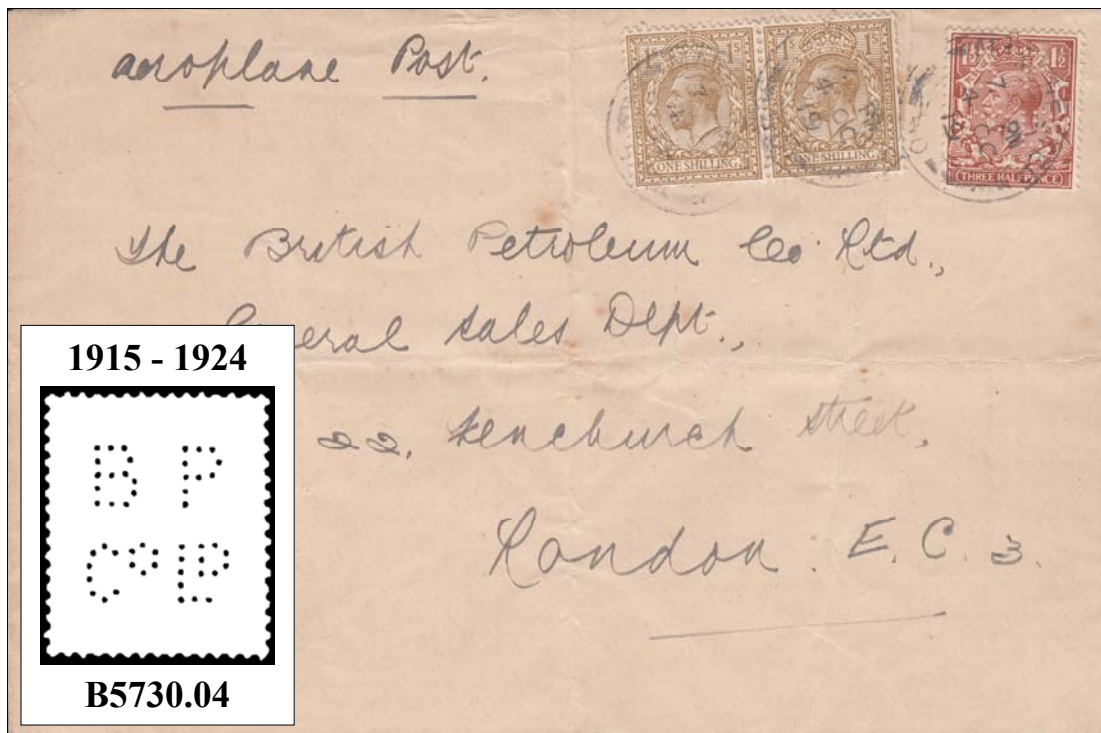 aeroplane Post.
1S 1S
ONE SHILLING
1S 1S
ONE SHILLING
1½ 1½
THREE HALFPENCE
The British Petroleum Co Ltd.,
General Sales Dept.,
22, Fenchurch Street.
London. E. C. 3.
1915 - 1924
B P
Co LD
B5730.04